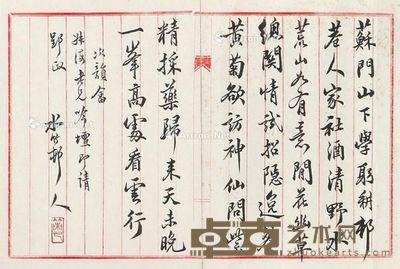 蘇門山下學躬耕邨
巷人家社酒清野水
荒山如有意閒花幽草
總關情試招隱逸
黃菊欲訪神仙問
精採藥歸來天未晚
一峯高處看雲行
次韻畣
老兄吟壇即請
郢政
水竹邨人